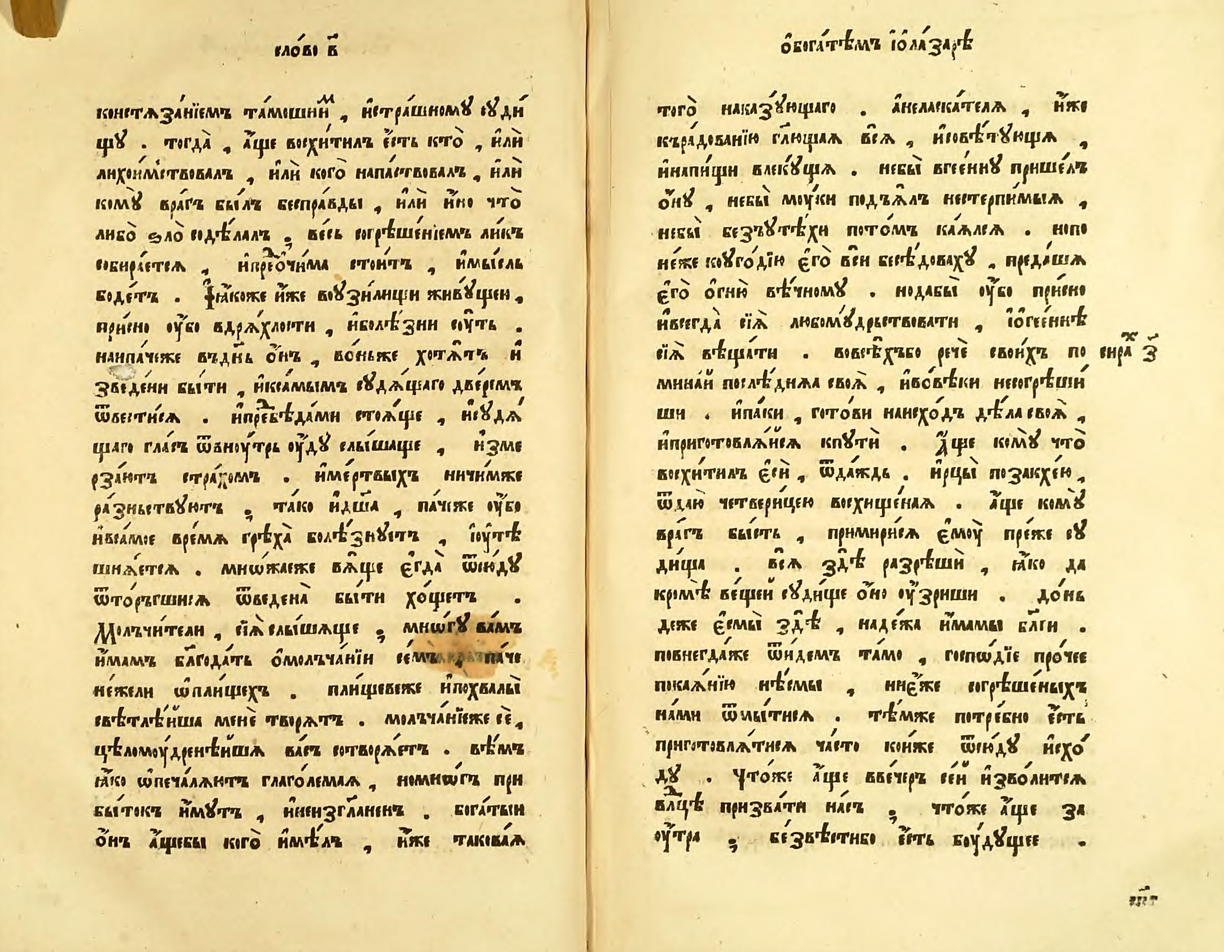 сло́во в҃
констѧза́нїемъ та́мошнимъ , истра́шномꙋ сꙋдї
щꙋ . тогда̀ , а҆́ще восхи́тилъ є҆́сть кто̀ , и҆лѝ
лихои́мствовалъ , и҆лѝ кого̀ напа́ствовалъ , и҆лѝ
комꙋ̀ вра́гъ бы́лъ беспра́вды , и҆лѝ и҆́но что̀
либо̀ ѕло̀ содѣ́лалъ ; весь согрѣше́нїемъ ли́къ
собира́етсѧ , и҆пред̾о́чима стои́тъ , и҆мы́сль
боде́тъ . Ꙗ҆́коже и҆́же воꙋзи́лищи живꙋ́щеи ,
при́сно оу҆́бо вдрѧ́хлости , и҆болѣ́зни сꙋ́ть .
наипа́чеже въдн҃ь ѻ҆́нъ , во́ньже хотѧ́тъ и
зведе́ни бы́ти , и҆ксамы́мъ сꙋдѧ́щаго две́ремъ
ѿвести́сѧ . и҆пред̾бѣ́дами стоѧ́ще , и҆сꙋдѧ́
щаго гла́съ ѿвноу́трь оу҆́дꙋ слы́шаще , и҆зме
рза́ютъ стра́хомъ . и҆ме́ртвыхъ ничи́мже
ра́зньствꙋютъ ; та́ко и҆дш҃а̀ , па́чеже оу҆́бо
и҆вса́мое вре́мѧ грѣха̀ болѣ́знꙋетъ , і҆оу҆тѣ
снѧ́етсѧ . мнѡ́жаеже вѧ́ще є҆гда̀ ѿсю́дꙋ
ѿто́ргшисѧ ѿведена̀ бы́ти хо́щетъ .
Молъчи́тели , сїѧ̀ слы́шаще ; мнѡ́гꙋ ва́мъ
и҆́мамъ бл҃года́ть ѻ҆молъча́нїи се́мъ , па́че
не́жели ѡ҆пле́щехъ . пле́щевеже и҆похвалы̀
свѣтлѣ́йша менѐ творѧ́тъ . молъча́нїеже сѐ ,
цѣломоу́дренѣйшѧ ва́съ сотворѧ́етъ . вѣ́мъ
ꙗ҆́ко ѡ҆печалѧ́итъ глаго́лемаѧ , номнѡ́гъ при
бы́токъ и҆́мꙋтъ , и҆неизгл҃а́ненъ . бога́тыи
ѻ҆́нъ а҆́щебы кого̀ и҆мѣ́лъ , и҆́же такова́ѧ
ѻ҆бога́тѣмъ и҆ ѻ҆ла́зарѣ
того̀ наказꙋ́ющаго . а҆неласка́телѧ , и҆́же
къра́дованїю гл҃ющаѧ всѧ̀ , и҆совѣ́тꙋющѧ ,
и҆напи́щи влекꙋ́щѧ . небы̀ вгее́ннꙋ прише́лъ
ѻ҆́нꙋ , небы̀ моу́ки подъѧ́лъ нестерпи́мыѧ ,
небы̀ безъꙋтѣ́хи пото́мъ ка́ѧлсѧ . нопо
не́же коуго́дїю є҆го̀ всѝ бесѣ́доваху , преда́шѧ
є҆го̀ ѻ҆гню̀ вѣ́чномꙋ . нодабы̀ оу҆́бо при́сно
и҆всегда̀ сїѧ̀ любомꙋ́дрьствовати , і҆ѻ҆гее́ннѣ
сїѧ̀ вѣща́ти . вовсѣ́хъбо речѐ свои́хъ по
сирах з҃
мина́й послѣ́днѧѧ своѧ̀ , и҆во́вѣки несогрѣши́
ши . и҆па́ки , гото́ви наисхо́дъ дѣ́ла своѧ̀ ,
и҆приготовлѧ́йсѧ кпꙋтѝ . А҆́ще комꙋ̀ что̀
восхи́тилъ є҆сѝ , ѿда́ждь . и҆рцы̀ позакхе́ю ,
ѿдаю̀ четвери́цею восхище́наѧ . а҆́ще комꙋ̀
вра́гъ бы́сть , примири́сѧ є҆моу̀ пре́же сꙋ
дища . всѧ̀ здѣ̀ разрѣшѝ , ꙗ҆́ко да
кромѣ̀ ве́щей сꙋди́ще ѻ҆́но оу҆́зриши . до́нь
деже є҆смы̀ здѣ̀ , наде́жа и҆́мамы бл҃ги .
повнегда́же ѿи́демъ та́мо , госпѡ́дїе про́чее
покаѧ́нїю нѣ́смы , ниє҆́же согрѣше́ныхъ
на́ми ѿмы́тисѧ . тѣ́мже потре́бно є҆́сть
приготовлѧ́тисѧ ча́сто кои́же ѿсю́дꙋ и҆схо́
дꙋ . Что́же а҆́ще вве́черъ се́й и҆зво́литсѧ
влⷣцѣ призва́ти на́съ ; что́же а҆́ще за
оу҆́тра ; безвѣ́стнбо є҆́сть боу́дꙋщее .